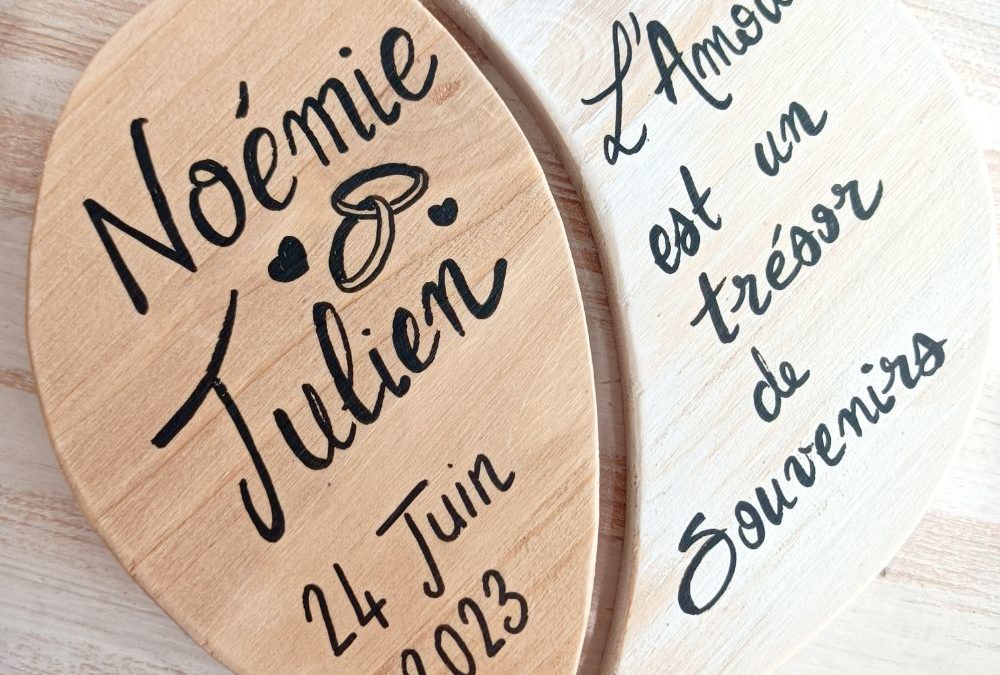 Noémie
Julien
24 Juin
2023
L'Amour
est un
trésor
de
Souvenirs